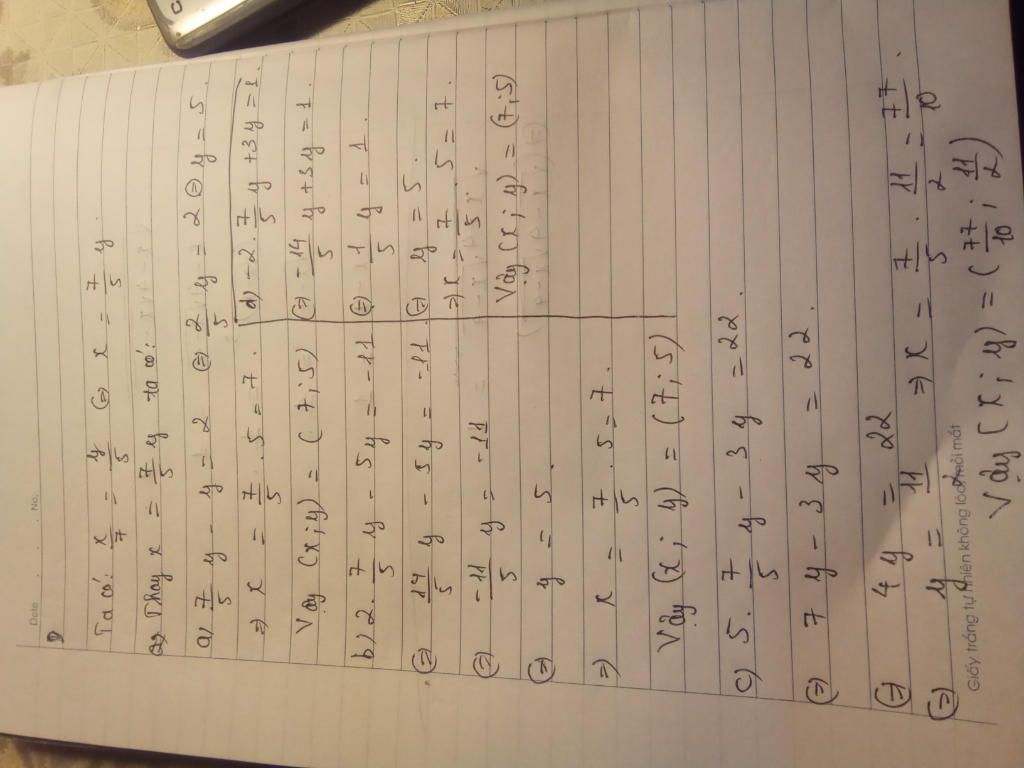 Date No.
Ta có: x/7 = y/5 ⇔ x = 7/5 y.
Thay x = 7/5 y ta có:
a) 7/5 y - y = 2 ⇔ 2/5 y = 2 ⇔ y = 5.
⇒ x = 7/5 . 5 = 7.
Vậy (x; y) = (7; 5)
b) 2. 7/5 y - 5y = -11
⇔ 14/5 y - 5y = -11.
⇔ -11/5 y = -11
⇔ y = 5.
⇒ x = 7/5 . 5 = 7.
Vậy (x; y) = (7; 5)
d) -2. 7/5 y + 3y = 1.
⇔ -14/5 y + 3y = 1.
⇔ 1/5 y = 1.
⇔ y = 5.
⇒ x = 7/5 5 = 7.
Vậy (x; y) = (7; 5)
c) 5. 7/5 y - 3y = 22.
⇔ 7y - 3y = 22.
⇔ 4y = 22
⇔ y = 11/2 ⇒ x = 7/5 . 11/2 = 77/10.
Vậy (x; y) = (77/10; 11/2)
Giấy trắng tự nhiên không lóa mỏi mắt